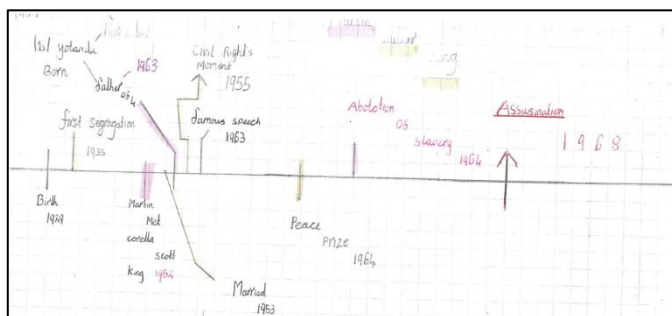 (1s) yolanda
Born
father
of 4
1963
Civil Right's
Moment
1955
first segregation
1935
famous speech
1963
Abolotion
of
Slavery
1964
Assusination
1968
Birth
1929
Martin
Met
corella
scott
king
Married
1953
Peace
Prize
1964